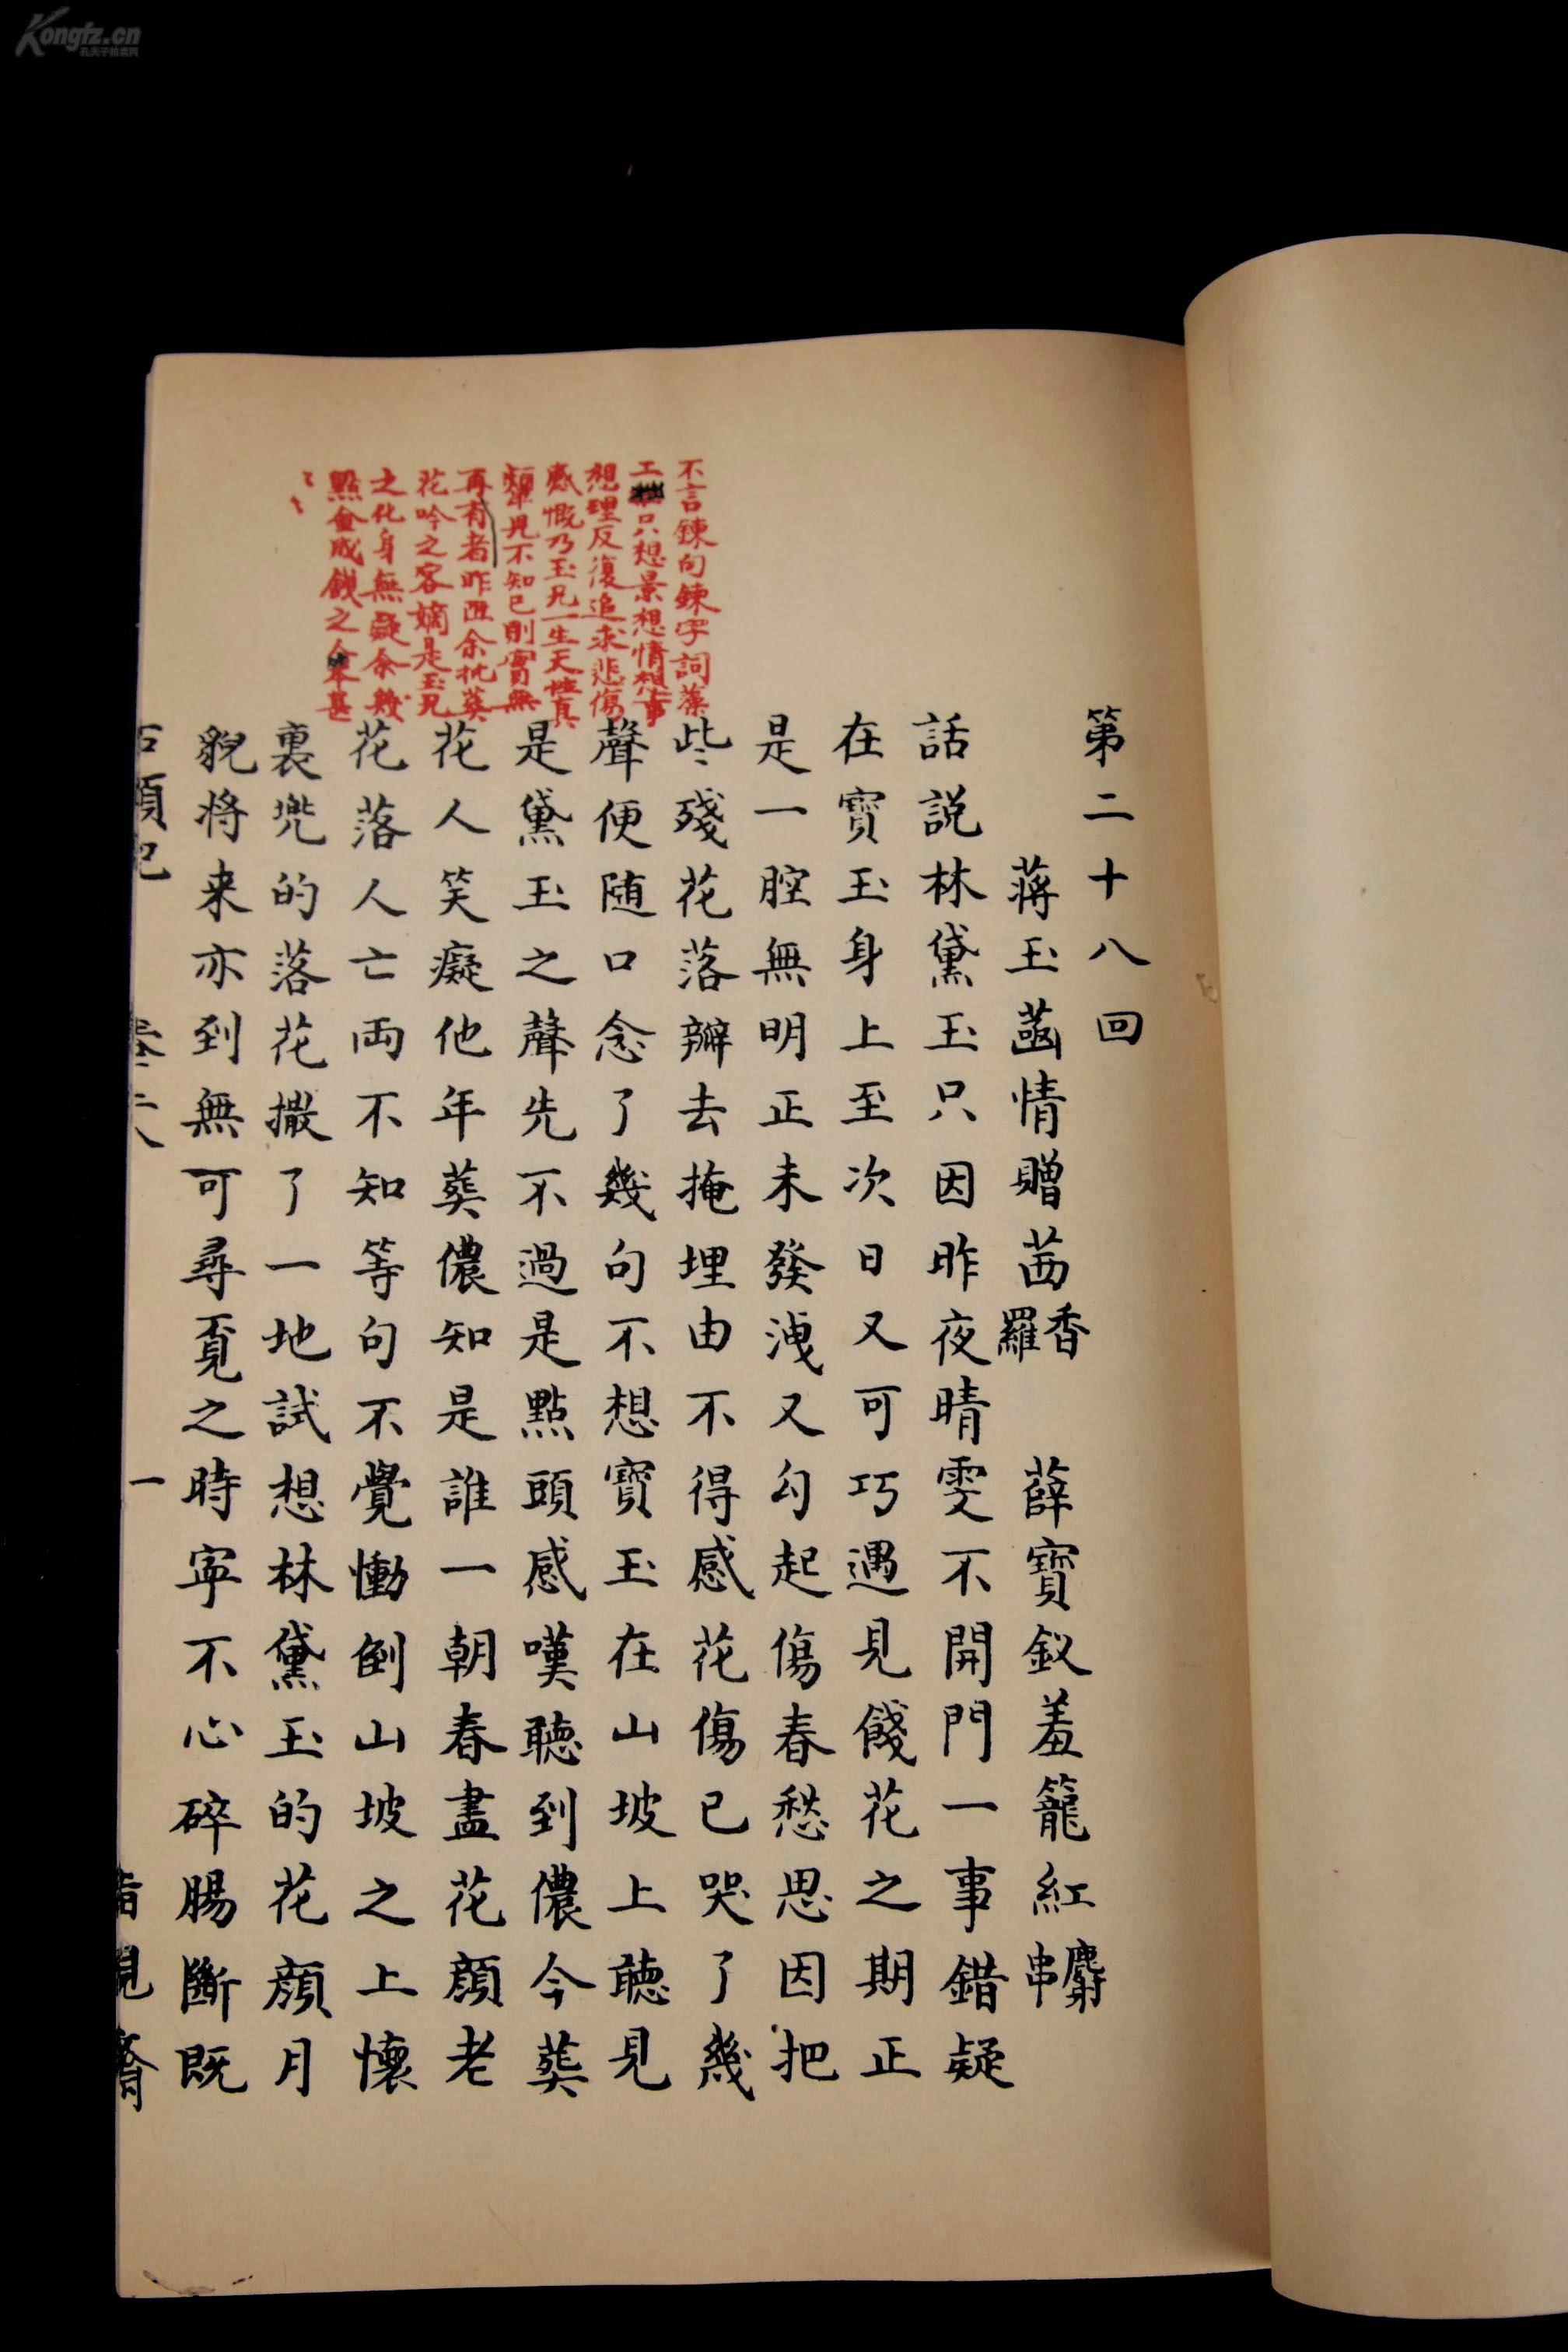 Kongfz.cn
孔夫子拍卖网
不言鍊句鍊字詞藻
工只想景想情想事
想理反復追求悲傷
感慨乃玉兄一生天性真
顰兒不知已則實無
再有者昨阻余批葬
花吟之客嫡是玉兄
之化身無疑余幾
點金成鐵之人幸甚
第二十八回
蔣玉菡情贈茜香羅 薛寶釵羞籠紅麝串
話説林黛玉只因昨夜晴雯不開門一事錯疑
在寶玉身上至次日又可巧遇見餞花之期正
是一腔無明正未發洩又勾起傷春愁思因把
些殘花落瓣去掩埋由不得感花傷已哭了幾
聲便随口念了幾句不想寶玉在山坡上聽見
是黛玉之聲先不過是點頭感嘆聽到儂今葬
花人笑癡他年葬儂知是誰一朝春盡花顔老
花落人亡両不知等句不覺慟倒山坡之上懷
裏兠的落花撒了一地試想林黛玉的花顔月
貌将来亦到無可尋覔之時寧不心碎腸斷既
石頭記 卷二八 一 脂硯齋